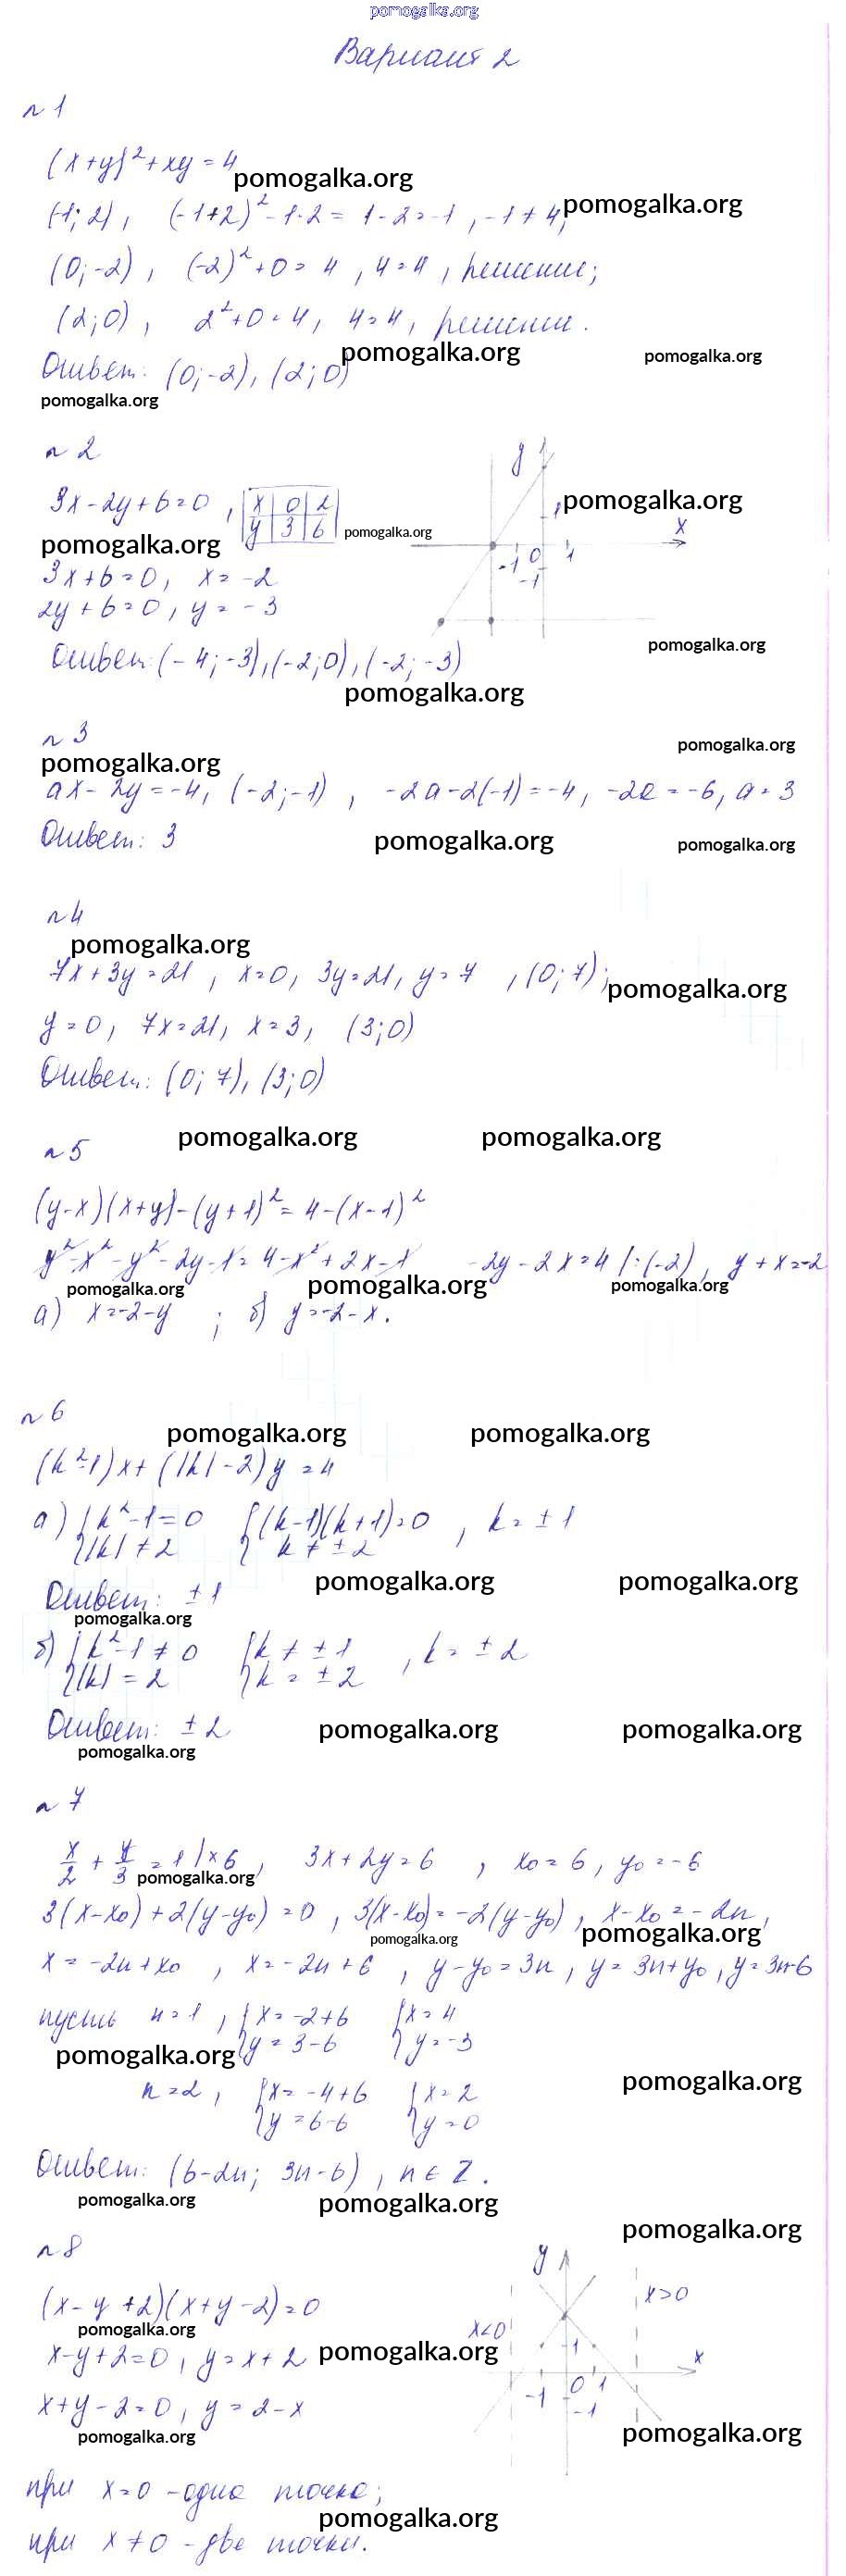 pomogalka.org
Вариант 2
№1
(x+y)²+xy=4
pomogalka.org
(-1; 2), (-1+2)²-1·2= 1-2=-1, -1≠4;
pomogalka.org
(0;-2), (-2)²+0=4, 4=4, решение;
(2;0), 2²+0=4, 4=4, решение.
pomogalka.org pomogalka.org
Ответ: (0;-2), (2;0)
pomogalka.org
№2
y
3x-2y+6=0, x 0 2
y 3 6
1 pomogalka.org
x
pomogalka.org pomogalka.org
-1 0 1
-1
3x+6=0, x=-2
2y+6=0, y=-3
pomogalka.org
Ответ: (-4;-3), (-2;0), (-2;-3)
pomogalka.org
№3
pomogalka.org
pomogalka.org
ax-2y=-4, (-2;-1), -2a-2(-1)=-4, -2a=-6, a=3
Ответ: 3
pomogalka.org pomogalka.org
№4
pomogalka.org
7x+3y=21, x=0, 3y=21, y=7, (0;7);
pomogalka.org
y=0, 7x=21, x=3, (3;0)
Ответ: (0;7), (3;0)
pomogalka.org pomogalka.org
№5
(y-x)(x+y)-(y+1)²=4-(x-1)²
y²-x²-y²-2y-1=4-x²+2x-1 -2y-2x=4 |:(-2), y+x=-2
pomogalka.org pomogalka.org pomogalka.org
а) x=-2-y; б) y=-2-x.
№6
pomogalka.org pomogalka.org
(k²-1)x+(|k|-2)y=4
а) {k²-1=0 {(k-1)(k+1)=0, k=±1
{|k|≠2 { k≠±2
pomogalka.org pomogalka.org
Ответ: ±1
pomogalka.org
б) {k²-1≠0 {k≠±1, k=±2
{|k|=2 {k=±2
Ответ: ±2
pomogalka.org pomogalka.org
pomogalka.org
№7
x/2 + y/3 = 1 |×6, 3x+2y=6, x₀=6, y₀=-6
pomogalka.org
3(x-x₀)+2(y-y₀)=0, 3(x-x₀)=-2(y-y₀), x-x₀=-2n,
pomogalka.org pomogalka.org
x=-2n+x₀, x=-2n+6, y-y₀=3n, y=3n+y₀, y=3n-6
пусть n=1, {x=-2+6 {x=4
{y=3-6 {y=-3
pomogalka.org
pomogalka.org
n=2, {x=-4+6 {x=2
{y=6-6 {y=0
Ответ: (6-2n; 3n-6), n∈Z.
pomogalka.org pomogalka.org
pomogalka.org
№8
y
x>0
(x-y+2)(x+y-2)=0
pomogalka.org
x<0
1
x-y+2=0, y=x+2
pomogalka.org
x
-1 0 1
-1
x+y-2=0, y=2-x
pomogalka.org pomogalka.org
при x=0 - одна точка;
pomogalka.org
при x≠0 - две точки.